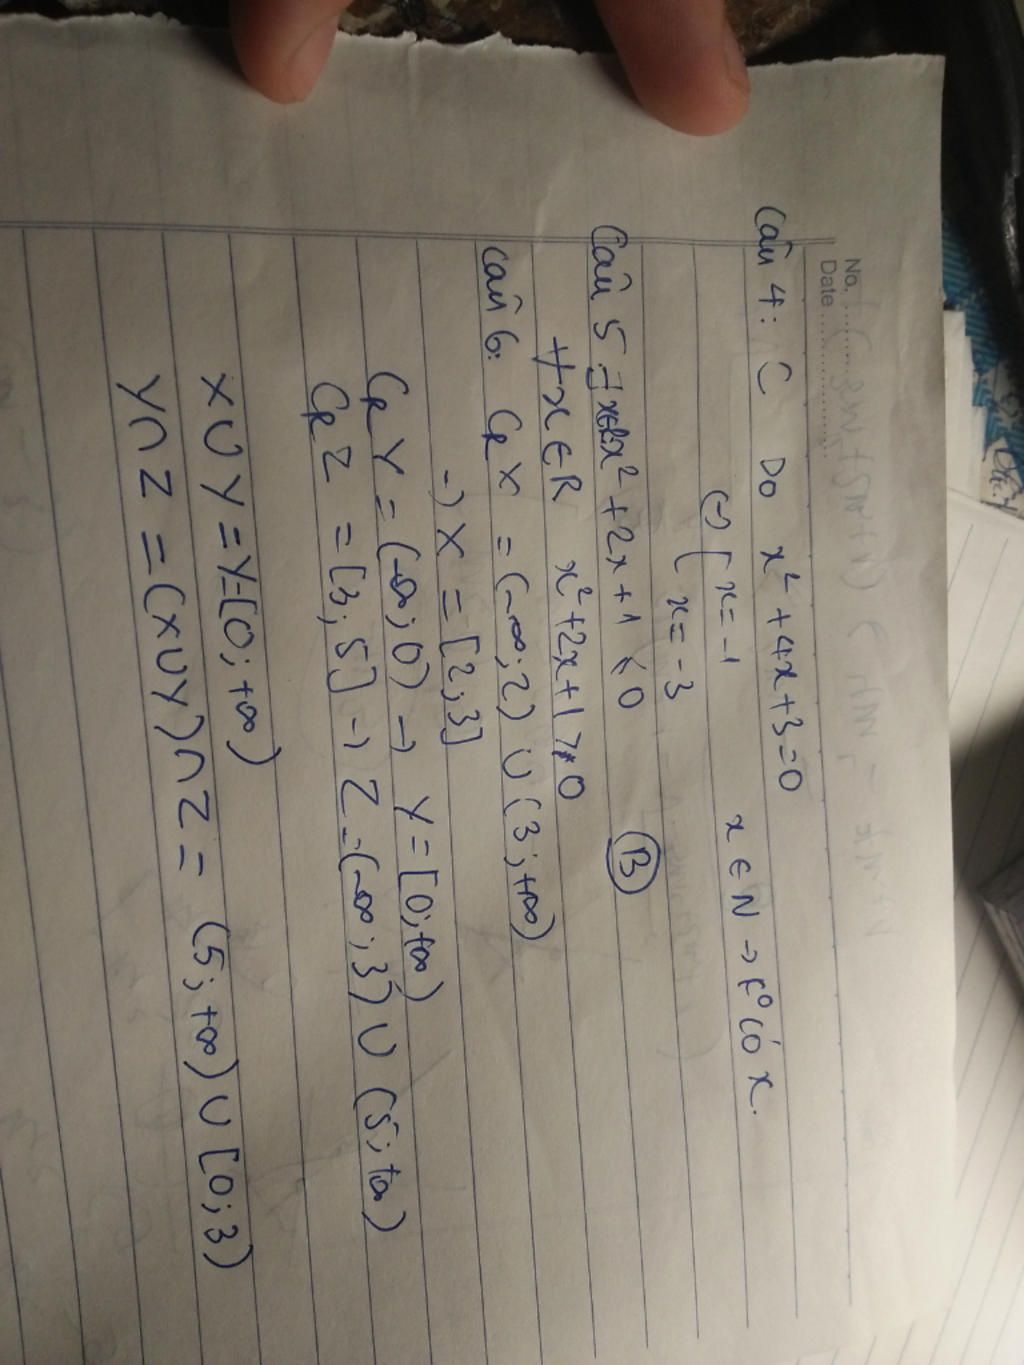 No.
Date
Câu 4: C Do x² + 4x + 3 = 0
(-) [ x = -1 x ∈ N → k° có x.
x = -3
Câu 5 ∃x∈R x² + 2x + 1 ≤ 0 (B)
∀x ∈ R x² + 2x + 1 > 0
Câu 6: CR X = (-∞; 2) ∪ (3; +∞)
→ X = [2; 3]
CR Y = (-∞; 0) → Y = [0; +∞)
CR Z = [3; 5] → Z = (-∞; 3) ∪ (5; +∞)
X ∪ Y = Y = [0; +∞)
Y ∩ Z = (X ∪ Y) ∩ Z = (5; +∞) ∪ [0; 3)